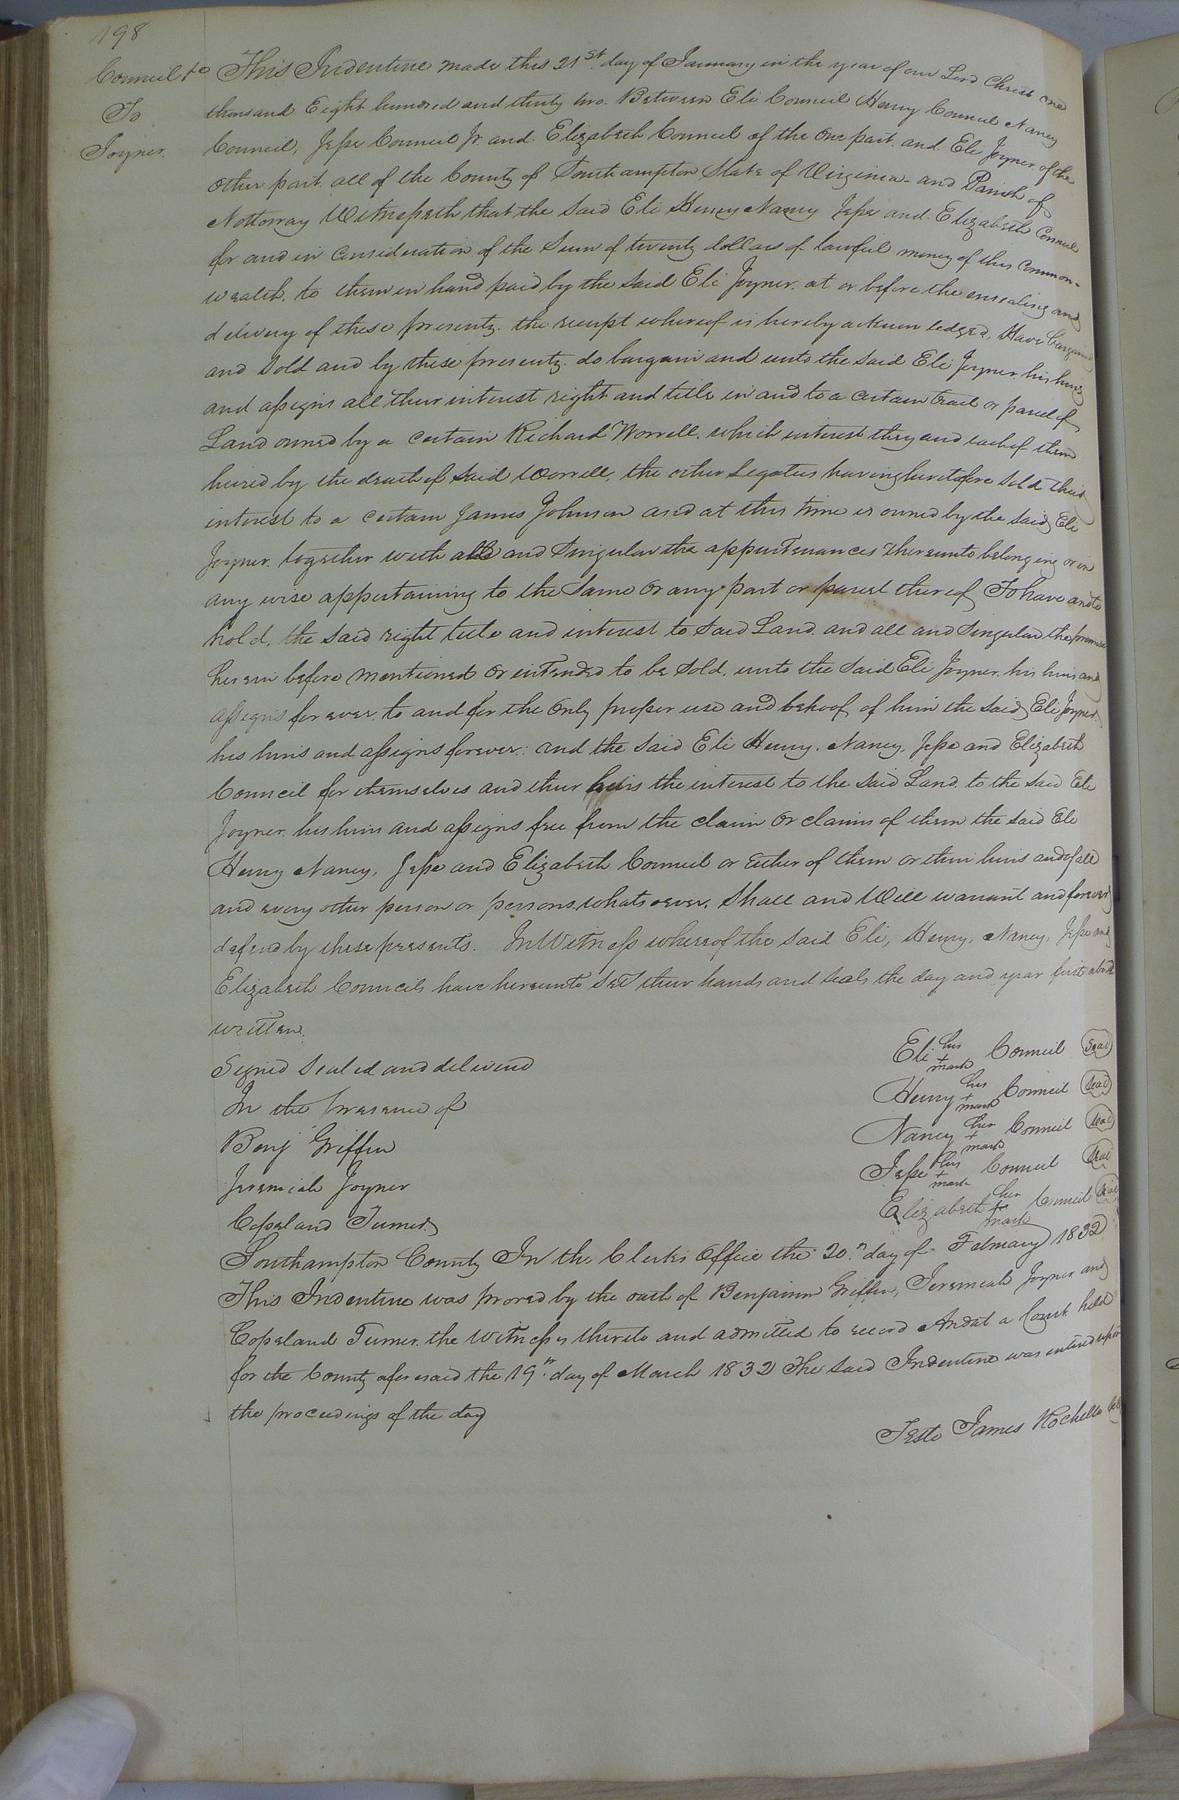 198
Council &c
To
Joyner.
This Indenture made this 21st day of January in the year of our Lord Christ one
thousand Eight hundred and thirty two. Between Eli Council Henry Council Nancy
Council, Jesse Council Jr. and Elizabeth Council of the one part and Eli Joyner of the
other part all of the County of Southampton State of Virginia and Parish of
Nottoway Witnesseth that the Said Eli Henry Nancy Jesse and Elizabeth Council
for and in Consideration of the Sum of twenty dollars of lawful money of this Common-
wealth to them in hand paid by the Said Eli Joyner at or before the ensealing and
delivery of these presents. the receipt whereof is hereby acknowledged, Have bargained
and Sold and by these presents do bargain and unto the Said Eli Joyner his heirs
and assigns all their interest right and title in and to a certain tract or parcel of
Land owned by a certain Richard Worrell which interest they and each of them
heired by the death of Said Worrell, the other Legatees having heretofore Sold their
interest to a certain James Johnson and at this time is owned by the Said Eli
Joyner together with all and Singular the appurtenances thereunto belonging or in
any wise appertaining to the Same or any part or parcel thereof To have and to
hold, the Said right title and interest to Said Land and all and Singular the premises
herein before mentioned or intended to be Sold, unto the Said Eli Joyner his heirs and
assigns for ever, to and for the only proper use and behoof of him the Said Eli Joyner
his heirs and assigns forever: and the Said Eli Henry. Nancy. Jesse and Elizabeth
Council for themselves and their heirs the interest to the Said Land to the Said Eli
Joyner his heirs and assigns free from the claim or claims of them the Said Eli
Henry Nancy, Jesse and Elizabeth Council or Either of them or their heirs and of all
and every other person or persons whatsoever, Shall and Will warrant and forever
defend by these presents. In Witness whereof the Said Eli, Henry, Nancy, Jesse and
Elizabeth Councils have hereunto Set their hands and Seals the day and year first above
written.
Signed Sealed and delivered
In the presence of
Benj Griffin
Jeremiah Joyner
Copeland Turner
Eli his + mark Council Seal
Henry his + mark Council Seal
Nancy her + mark Council Seal
Jesse his + mark Council Seal
Elizabeth her + mark Council Seal
Southampton County In the Clerks Office the 20th day of February 1832
This Indenture was proved by the oath of Benjamin Griffin, Jeremiah Joyner and
Copeland Turner the Witnesses thereto and admitted to record And at a Court held
for the County aforesaid the 19th day of March 1832 The Said Indenture was entered upon
the proceedings of the day
Teste James Rochelle